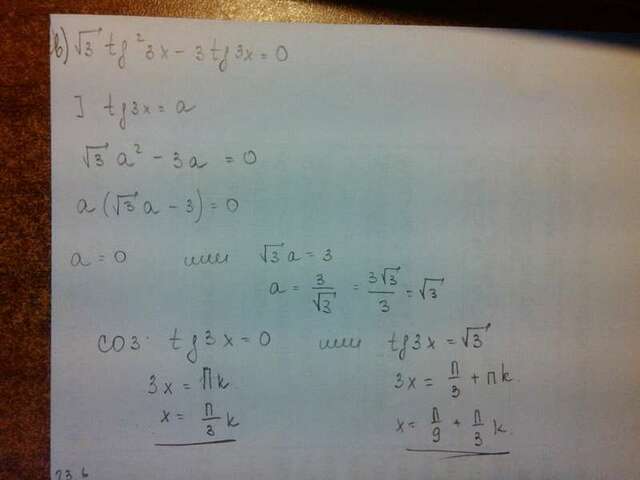 в) √3 tg²3x - 3tg3x = 0
] tg3x = a
√3 a² - 3a = 0
a(√3 a - 3) = 0
a = 0 или √3 a = 3
a = 3/√3 = 3√3/3 = √3
СОЗ: tg3x = 0 или tg3x = √3
3x = πk 3x = π/3 + πk
x = π/3 k x = π/9 + π/3 k